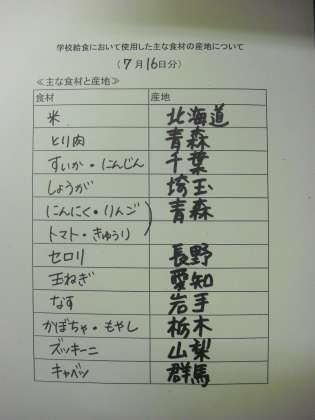 学校給食において使用した主な食材の産地について
(7月16日分)
≪主な食材と産地≫
食材 産地
米 北海道
とり肉 青森
すいか・にんじん 千葉
しょうが 埼玉
にんにく・りんご 青森
トマト・きゅうり
セロリ 長野
玉ねぎ 愛知
なす 岩手
かぼちゃ・もやし 栃木
ズッキーニ 山梨
キャベツ 群馬